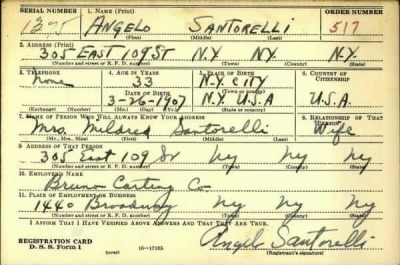 SERIAL NUMBER 1. NAME (Print) ORDER NUMBER
ANGELO SANTORELLI 517
(First) (Middle) (Last)
2. ADDRESS (Print)
305 EAST 109 ST N.Y. NY. N.Y.
(Number and street or R. F. D. number) (Town) (County) (State)
3. TELEPHONE 4. AGE IN YEARS 5. PLACE OF BIRTH 6. COUNTRY OF CITIZENSHIP
None 33 N.Y. CITY
(Town or county)
DATE OF BIRTH
3-26-1907 N.Y. U.S.A U.S.A.
(Exchange) (Number) (Mo.) (Day) (Yr.) (State or country)
7. NAME OF PERSON WHO WILL ALWAYS KNOW YOUR ADDRESS 8. RELATIONSHIP OF THAT PERSON
Mrs. Mildred Santorelli Wife
(Mr., Mrs., Miss) (First) (Middle) (Last)
9. ADDRESS OF THAT PERSON
305 East 109 St Ny Ny Ny
(Number and street or R. F. D. number) (Town) (County) (State)
10. EMPLOYER'S NAME
Bruno Carting Co
11. PLACE OF EMPLOYMENT OR BUSINESS
1440 Broadway Ny Ny Ny
(Number and street or R. F. D. number) (Town) (County) (State)
I AFFIRM THAT I HAVE VERIFIED ABOVE ANSWERS AND THAT THEY ARE TRUE.
REGISTRATION CARD
D. S. S. Form 1 (over) 16-17105 Angelo Santorelli
(Registrant's signature)